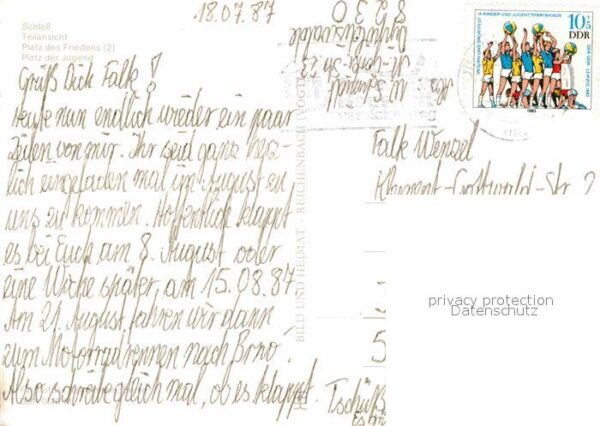 18.07.87
Schloß
Teilansicht
Platz des Friedens (2)
Platz der Jugend
Grüß Dich Falk!
Heute nun endlich wieder ein paar
Zeilen von mir. Ihr seid ganz herz-
lich eingeladen mal im August zu
uns zu kommen. Hoffentlich klappt
es bei Euch am 8. August oder
eine Woche später, am 15.08.87
Am 21. August fahren wir dann
zum Motorradrennen nach Brno!
Also schreibe gleich mal, ob es klappt. Tschüß
BILD UND HEIMAT REICHENBACH (VOGTL
Abs.
10+5
DDR
Falk Wenzel
Klement-Gottwald-Str
5
privacy protection
Datenschutz